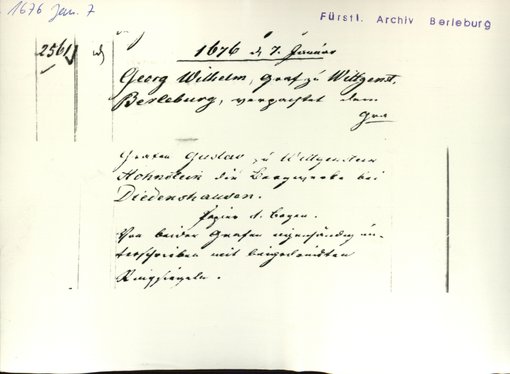 1676 Jan. 7
Fürstl. Archiv Berleburg
2561
1676 d. 7. Januar
Georg Wilhelm, Graf zu Wittgenst.
Berleburg, verpachtet dem
Gra
Grafen Gustav zu Wittgenstein
Hohnstein die Bergwerke bei
Diedenshausen.
Papier 1. Bogen.
Von beiden Grafen eigenhändig un-
terschrieben mit beigedrückten
Ringsiegeln.